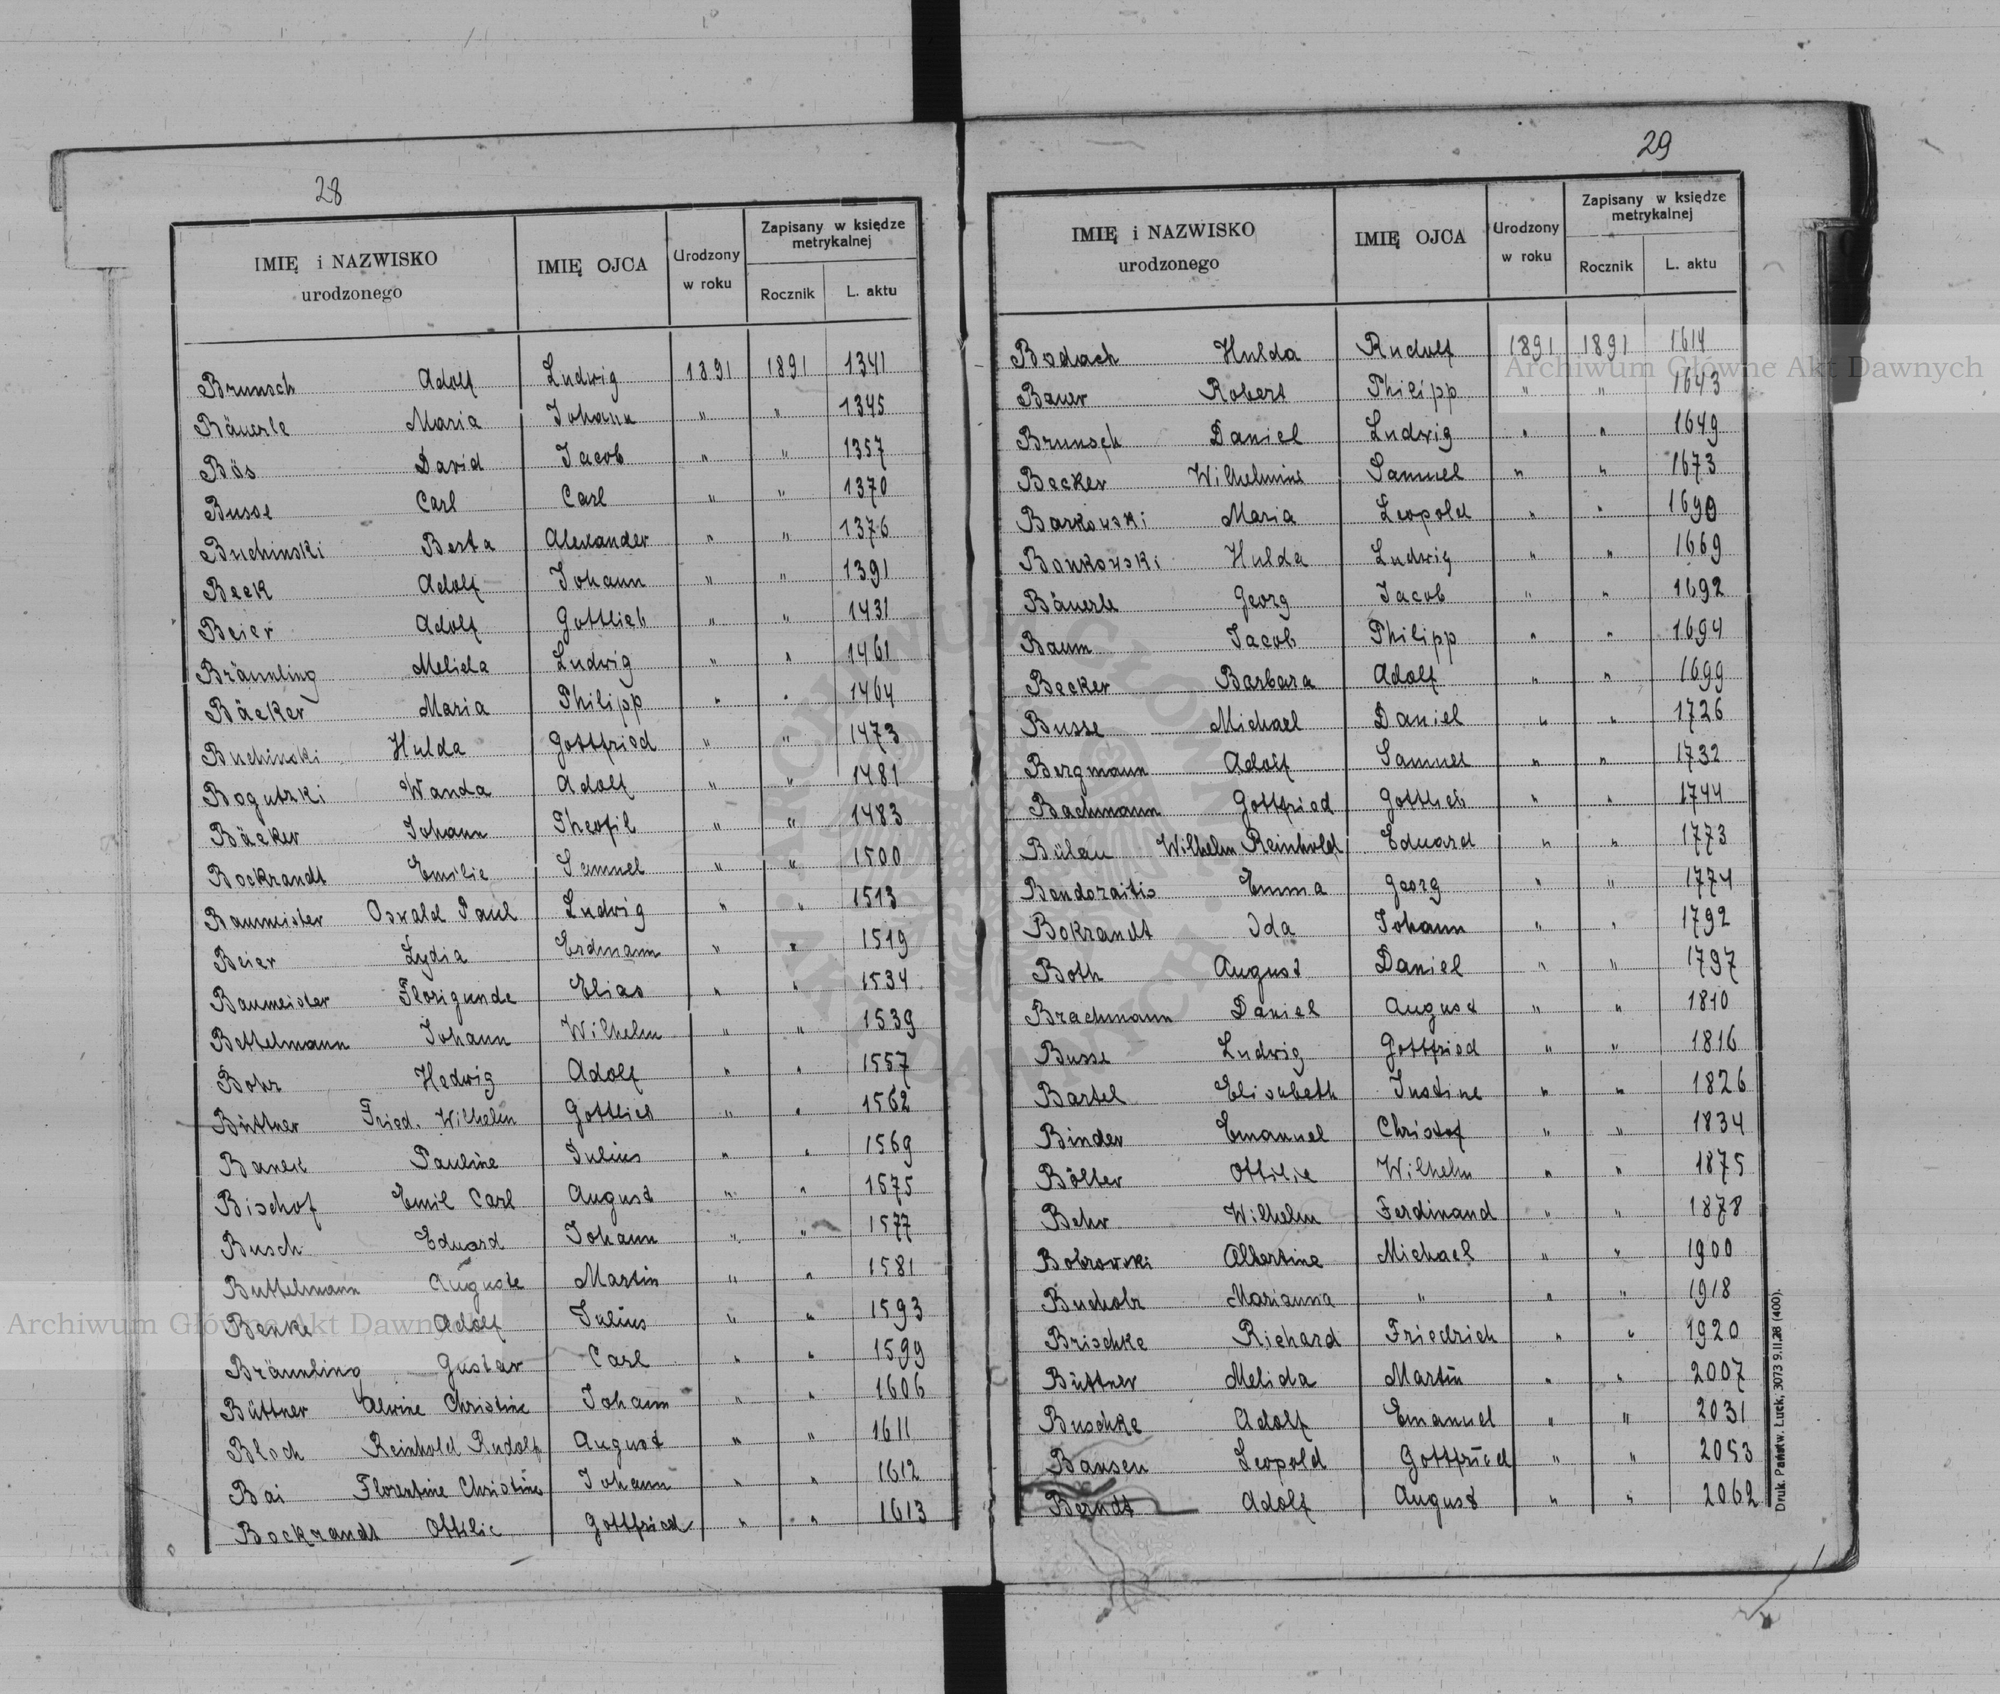 28
IMIĘ i NAZWISKO urodzonego
IMIĘ OJCA
Urodzony w roku
Zapisany w księdze metrykalnej
Rocznik
L. aktu
Brunsch Adolf Ludwig 1891 1891 1341
Bäuerle Maria Johann " " 1345
Bös David Jacob " " 1357
Busse Carl Carl " " 1370
Buchinski Berta Alexander " " 1376
Beck Adolf Johann " " 1391
Beier Adolf Gottlieb " " 1431
Bräunling Melida Ludwig " " 1461
Bäcker Maria Philipp " " 1464
Buchinski Hulda Gottfried " " 1473
Bogutzki Wanda Adolf " " 1481
Bäcker Johann Theofil " " 1483
Bockrandt Emilie Samuel " " 1500
Baumeister Oswald Paul Ludwig " " 1513
Beier Lydia Erdmann " " 1519
Baumeister Florigunde Elias " " 1534
Bettelmann Johann Wilhelm " " 1539
Bohr Hedwig Adolf " " 1557
Büttner Fried. Wilhelm Gottlieb " " 1562
Banek Pauline Julius " " 1569
Bischof Emil Carl August " " 1575
Busch Eduard Johann " " 1577
Buttelmann Auguste Martin " " 1581
Benke Adolf Julius " " 1593
Bräunling Gustav Carl " " 1599
Büttner Alwine Christine Johann " " 1606
Bloch Reinhold Rudolf August " " 1611
Bai Florentine Christine Johann " " 1612
Bockrandt Ottilie Gottfried " " 1613
29
IMIĘ i NAZWISKO urodzonego
IMIĘ OJCA
Urodzony w roku
Zapisany w księdze metrykalnej
Rocznik
L. aktu
Bodach Hulda Rudolf 1891 1891 1614
Bauer Robert Philipp " " 1643
Brunsch Daniel Ludwig " " 1649
Becker Wilhelmine Samuel " " 1673
Barkowski Maria Leopold " " 1690
Bonkowski Hulda Ludwig " " 1669
Bäuerle Georg Jacob " " 1692
Baum Jacob Philipp " " 1694
Becker Barbara Adolf " " 1699
Busse Michael Daniel " " 1726
Bergmann Adolf Samuel " " 1732
Bachmann Gottfried Gottlieb " " 1744
Bülau Wilhelm Reinhold Eduard " " 1773
Bendoraitis Emma Georg " " 1774
Bokrandt Ida Johann " " 1792
Both August Daniel " " 1797
Brachmann Daniel August " " 1810
Busse Ludwig Gottfried " " 1816
Bartel Elisabeth Justine " " 1826
Binder Emanuel Christof " " 1834
Bölter Ottilie Wilhelm " " 1875
Behr Wilhelm Ferdinand " " 1878
Bobrowski Albertine Michael " " 1900
Bucholz Marianna " " " 1918
Brischke Richard Friedrich " " 1920
Büttner Melida Martin " " 2007
Buschke Adolf Emanuel " " 2031
Bansen Leopold Gottfried " " 2053
Berndt Adolf August " " 2062
Druk. Państw. Łuck, 3073 9.II.28 (400).
Archiwum Główne Akt Dawnych
Archiwum Główne Akt Dawnych
ARCHIWUM GŁÓWNE AKT DAWNYCH